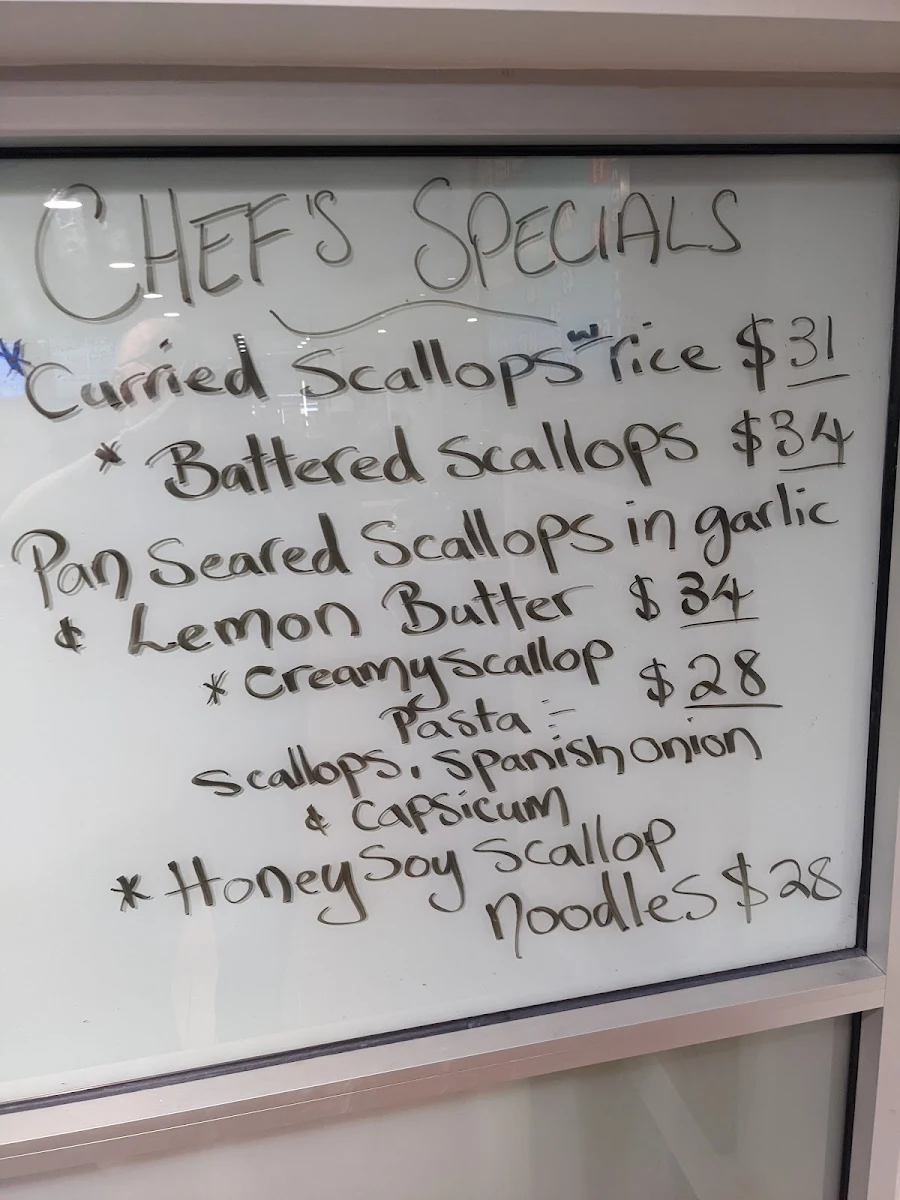 CHEF'S SPECIALS
* Curried Scallops w/ rice $31
* Battered Scallops $34
Pan Seared Scallops in garlic
& Lemon Butter $34
* Creamy Scallop $28
Pasta :-
Scallops, Spanish Onion
& Capsicum
* Honey Soy Scallop
Noodles $28